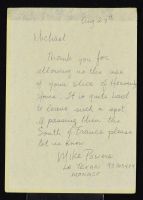 Aug 27th
Michael
Thank you for
allowing us the use
of your slice of Heaven
. It is quite hard
to leave such a spot
if passing thru the
South of France please
let us know
Mike
LA
MONACO